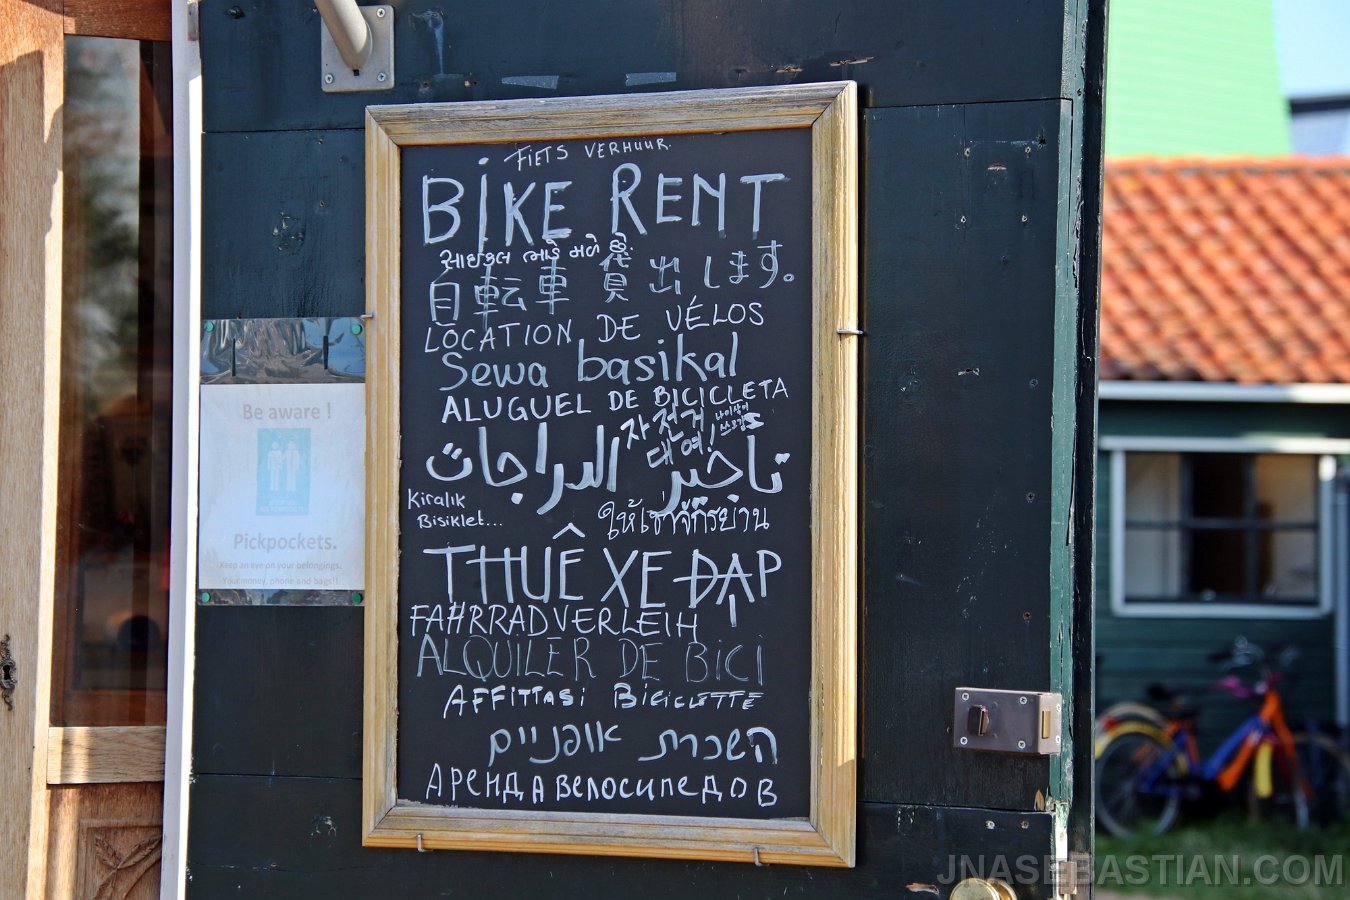 FIETS VERHUUR.
BIKE RENT
સાઇકલ ભાડે મળે છે.
自転車 貸出します。
LOCATION DE VÉLOS
Sewa basikal
ALUGUEL DE BICICLETA
자전거
대여!
تاخير الدراجات
Kiralık
Bisiklet...
ให้เช่าจักรยาน
THUÊ XE ĐẠP
FAHRRADVERLEIH
ALQUILER DE BICI
AFFITTASI BICICLETTE
השכרת אופניים
АРЕНДА ВЕЛОСИПЕДОВ
Be aware !
Pickpockets.
Keep an eye on your belongings.
Your money, phone and bags!!
JNASEBASTIAN.COM